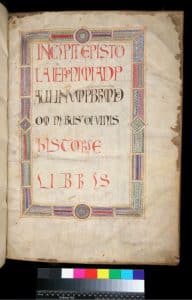 INCIPIT EPISTO
LA IERONIMI AD P
AULINUM PRBM D
OMNIBUS DIVINIS
HISTORIE
LIBRIS